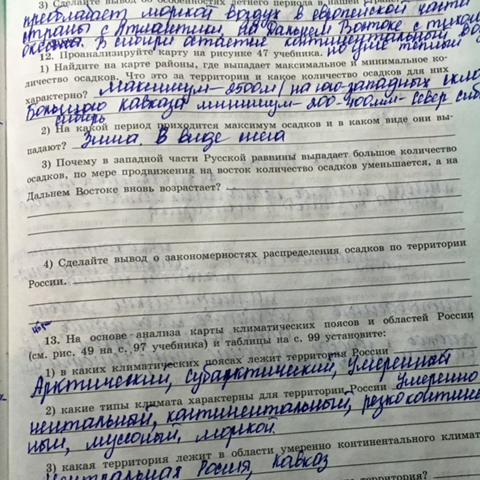 3) Сделайте вывод об особенностях летнего периода в нашей
преобладает морской воздух в европейской части
страны с Атлантики, на Дальнем Востоке с тихого
океана. В Сибири остается континентальный
12. Проанализируйте карту на рисунке 47 учебника.
1) Найдите на карте районы, где выпадает максимальное и минимальное ко-
личество осадков. Что это за территории и какое количество осадков для них
характерно? Максимум - 2500м/ на юго-западных
Большого Кавказа минимум - 200-400мм север
сибирь
2) На какой период приходится максимум осадков и в каком виде они вы-
падают? Зима. В виде снега
3) Почему в западной части Русской равнины выпадает большое количество
осадков, по мере продвижения на восток количество осадков уменьшается, а на
Дальнем Востоке вновь возрастает?
4) Сделайте вывод о закономерностях распределения осадков по территории
России.
13. На основе анализа карты климатических поясов и областей России
(см. рис. 49 на с. 97 учебника) и таблицы на с. 99 установите:
1) в каких климатических поясах лежит территория России
Арктический, субарктический, умеренный
2) какие типы климата характерны для территории России Умеренно
нентальный, континентальный, резко континен
ный, мусоный, морской
3) какая территория лежит в области умеренно континентального климат
Центральная Росия, Кавказ
территория?